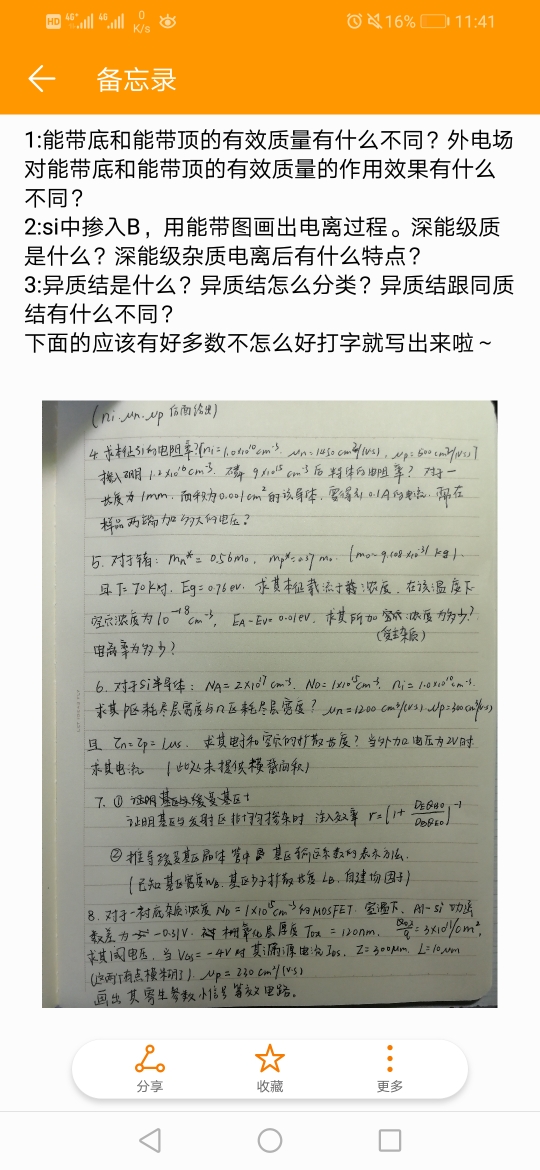 HD 4G+ 4G 0 K/s 16% 11:41
备忘录
1:能带底和能带顶的有效质量有什么不同？外电场
对能带底和能带顶的有效质量的作用效果有什么
不同？
2:si中掺入B，用能带图画出电离过程。深能级质
是什么？深能级杂质电离后有什么特点？
3:异质结是什么？异质结怎么分类？异质结跟同质
结有什么不同？
下面的应该有好多数不怎么好打字就写出来啦～
(ni. μn. μp 后面给出)
4. 求本征Si的电阻率?[ni=1.0x10¹⁰cm⁻³. μn=1450cm²/(V·s), μp=500cm²/(V·s)]
掺入硼 1.2x10¹⁶cm⁻³. 磷 9x10¹⁵cm⁻³后 电阻率？对于一
长度为1mm. 面积为0.001cm²的该导体，要得到0.1A的电流. 需在
样品两端加多大的电压？
5. 对于锗: mn*=0.56m₀, mp*=0.37m₀. (m₀=9.108x10⁻³¹kg).
且T=70K时, Eg=0.76eV. 求其本征载流子浓度. 在该温度下
空穴浓度为10⁻¹⁸cm⁻³, EA-EV=0.01eV. 求其所加 浓度为多少?
(受主杂质)
电离率为多少?
6. 对于Si半导体: NA=2x10¹⁷cm⁻³. ND=1x10¹⁵cm⁻³. ni=1.0x10¹⁰cm⁻³.
求其P区耗尽层宽度与n区耗尽层宽度? μn=1200cm²/(V·s) μp=300cm²/(V·s)
且 τn=τp=1μs. 求其电子和空穴的扩散长度? 当外加电压为2V时
求其电流 (此处未提供横截面积)
7. ①
证明基区与发射区 掺杂时 注入效率 r=(1+DEQBO/DBQEO)⁻¹
② 推导缓变基区晶体管中 基区输运系数的表示方法.
(已知基区宽度WB. 基区少子扩散长度LB. 自建场因子)
8. 对于一衬底杂质浓度 ND=1x10¹⁵cm⁻³的MOSFET. 室温下. Al-Si 功函
数差为 -0.31V. 栅氧化层厚度 Tox=120nm. =3x10¹¹/cm²,
求其阈电压, 当VGS=-4V时 其漏源电流IDS. Z=300μm. L=10μm
(这两个有点模糊了). μp=230cm²/(V·s)
画出其寄生参数小信号等效电路。
分享 收藏 更多